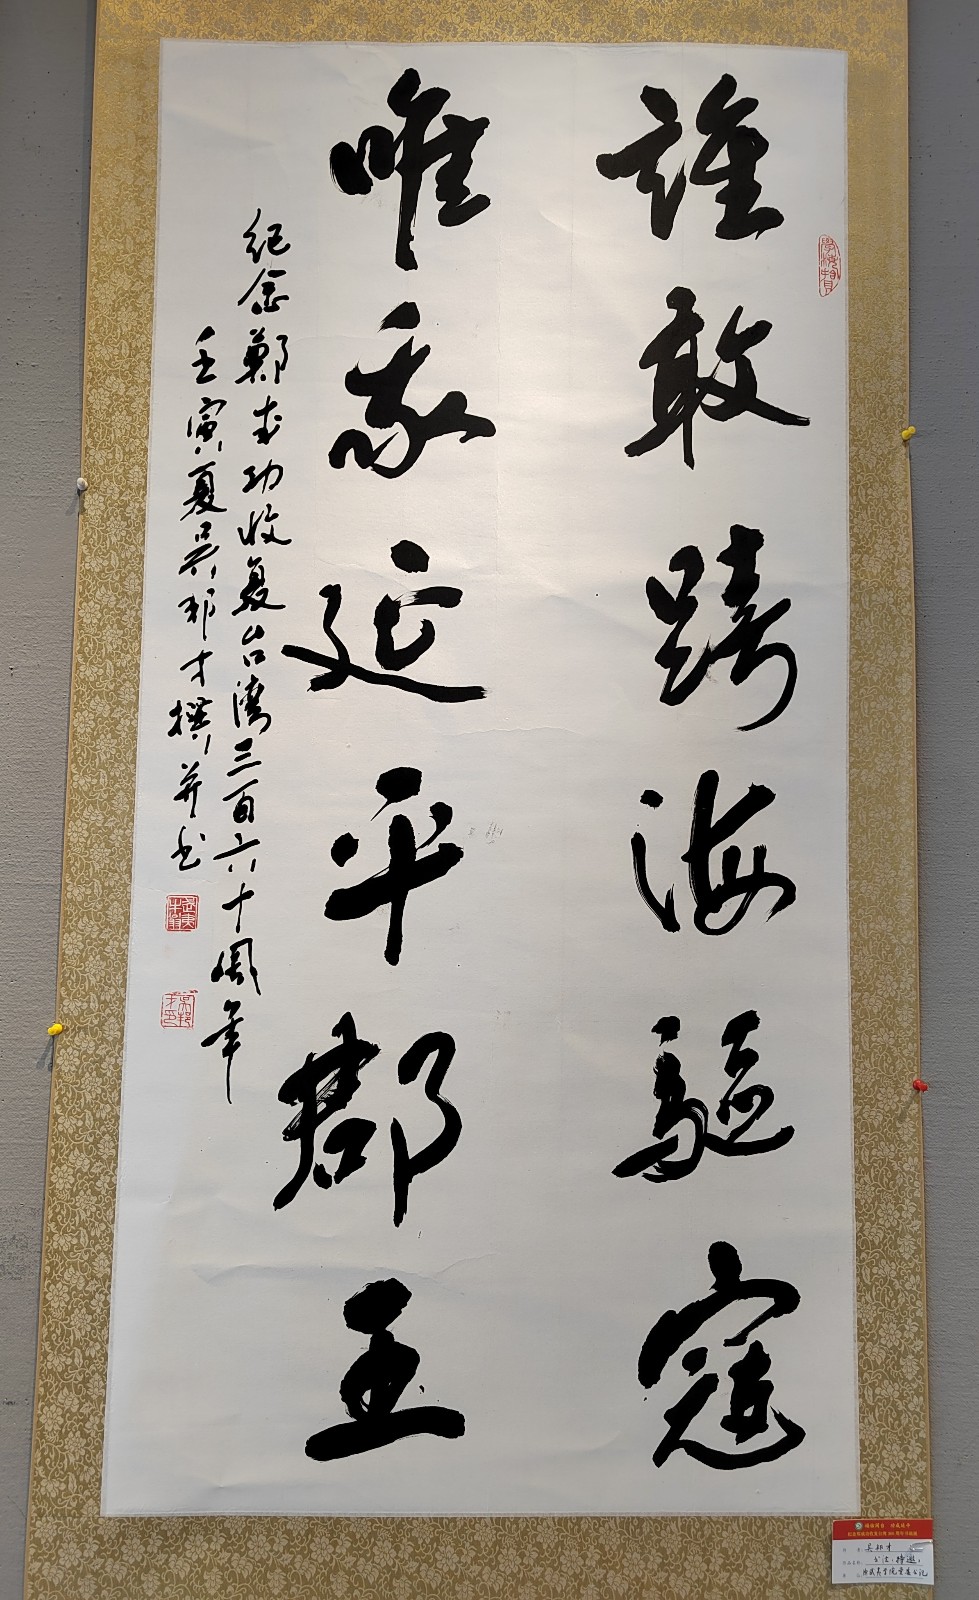 誰敢跨海驅寇
唯我延平郡王
紀念鄭成功收复台湾三百六十周年
壬寅夏吴邦才撰并书
吴邦才